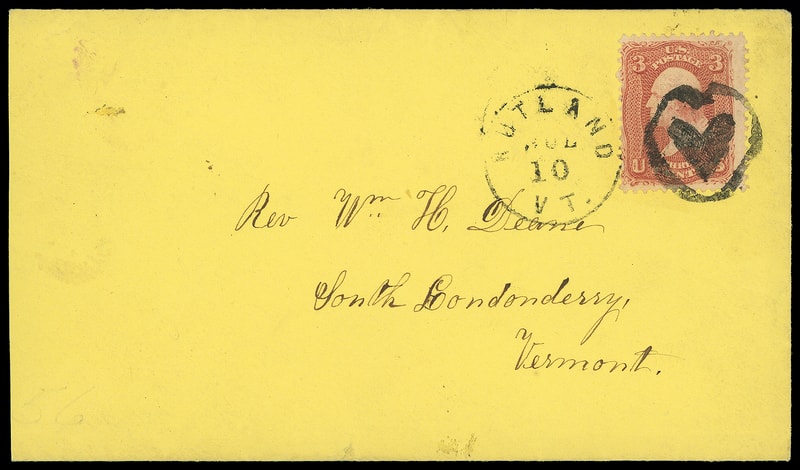 3 U.S. 3
POSTAGE
U S
RUTLAND
JUL
10
VT.
Rev Wm H. Deane
South Londonderry,
Vermont.
56